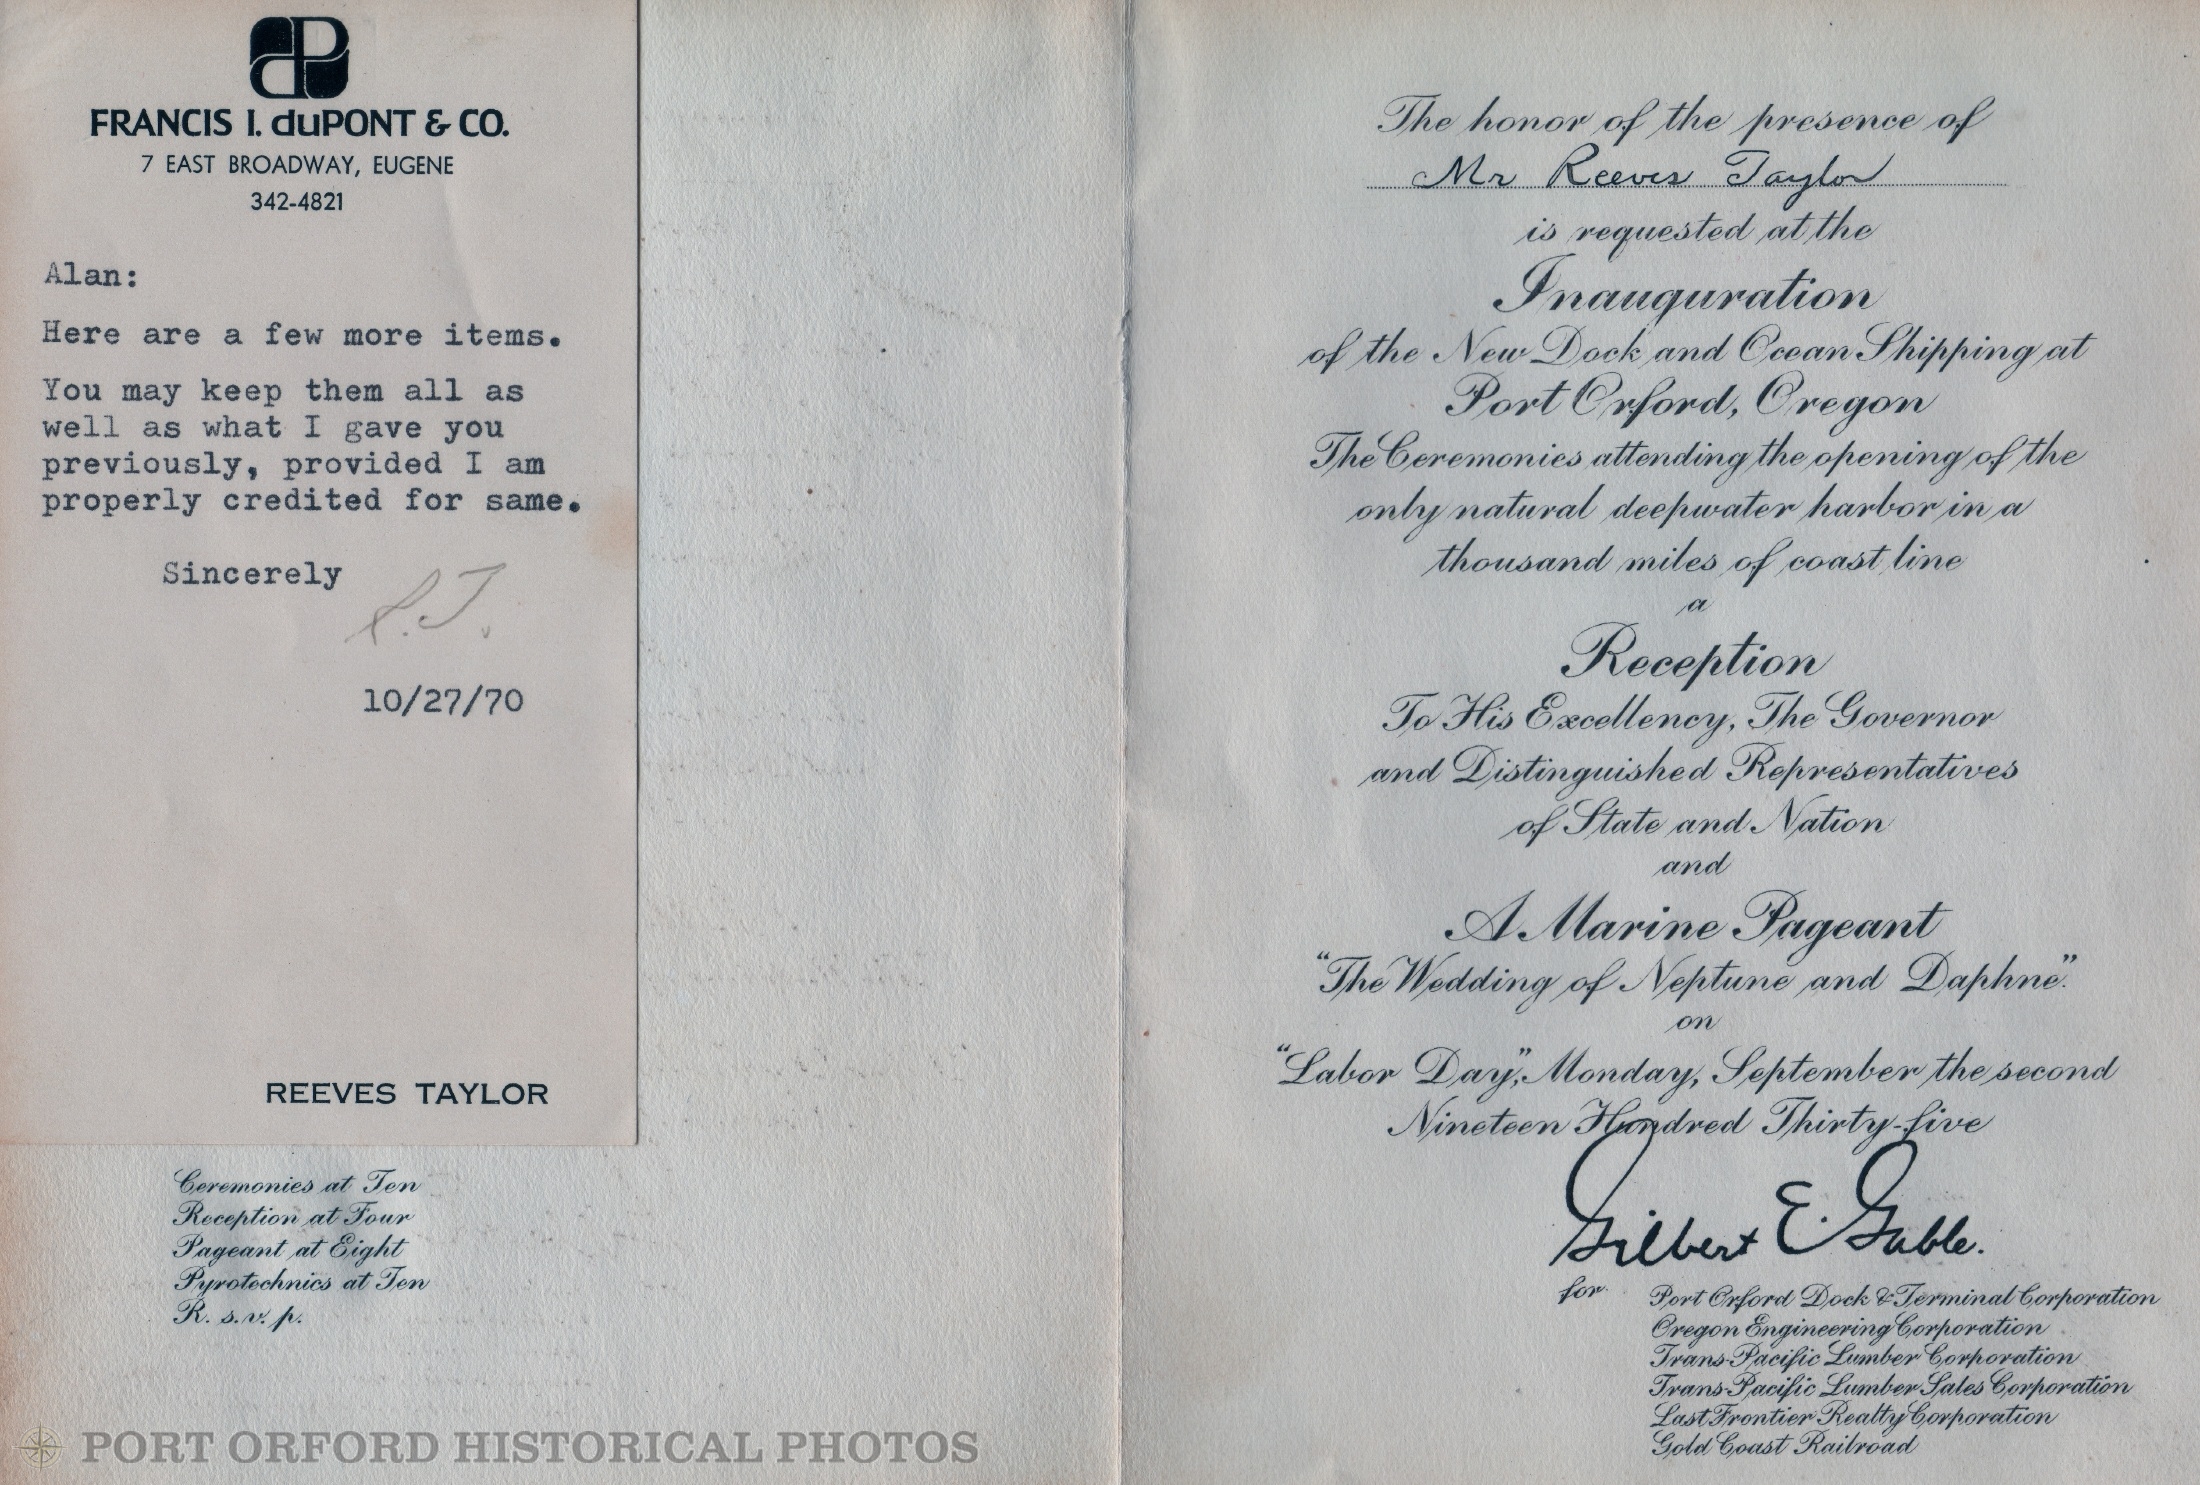 FRANCIS I. duPONT & CO.
7 EAST BROADWAY, EUGENE
342-4821
Alan:
Here are a few more items.
You may keep them all as
well as what I gave you
previously, provided I am
properly credited for same.
Sincerely
R.T.
10/27/70
REEVES TAYLOR
Ceremonies at Ten
Reception at Four
Pageant at Eight
Pyrotechnics at Ten
R. s. v. p.
PORT ORFORD HISTORICAL PHOTOS
The honor of the presence of
Mr Reeves Taylor
is requested at the
Inauguration
of the New Dock and Ocean Shipping at
Port Orford, Oregon
The Ceremonies attending the opening of the
only natural deepwater harbor in a
thousand miles of coast line
a
Reception
To His Excellency, The Governor
and Distinguished Representatives
of State and Nation
and
A Marine Pageant
"The Wedding of Neptune and Daphne".
on
"Labor Day", Monday, September the second
Nineteen Hundred Thirty-five
Gilbert E. Gable.
for Port Orford Dock & Terminal Corporation
Oregon Engineering Corporation
Trans-Pacific Lumber Corporation
Trans-Pacific Lumber Sales Corporation
Last Frontier Realty Corporation
Gold Coast Railroad